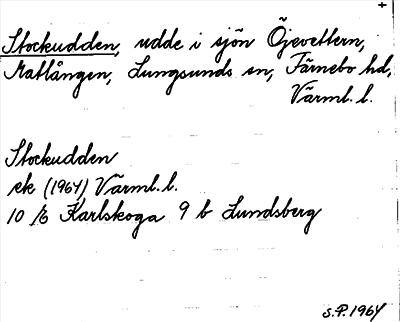 +
Stockudden, udde i sjön Öjevettern,
Matlången, Lungsunds sn, Färnebo hd,
Värml. l.
Stockudden
ek (1964) Värml. l.
10 /6 Karlskoga 9 b Lundsberg
S.P. 1964